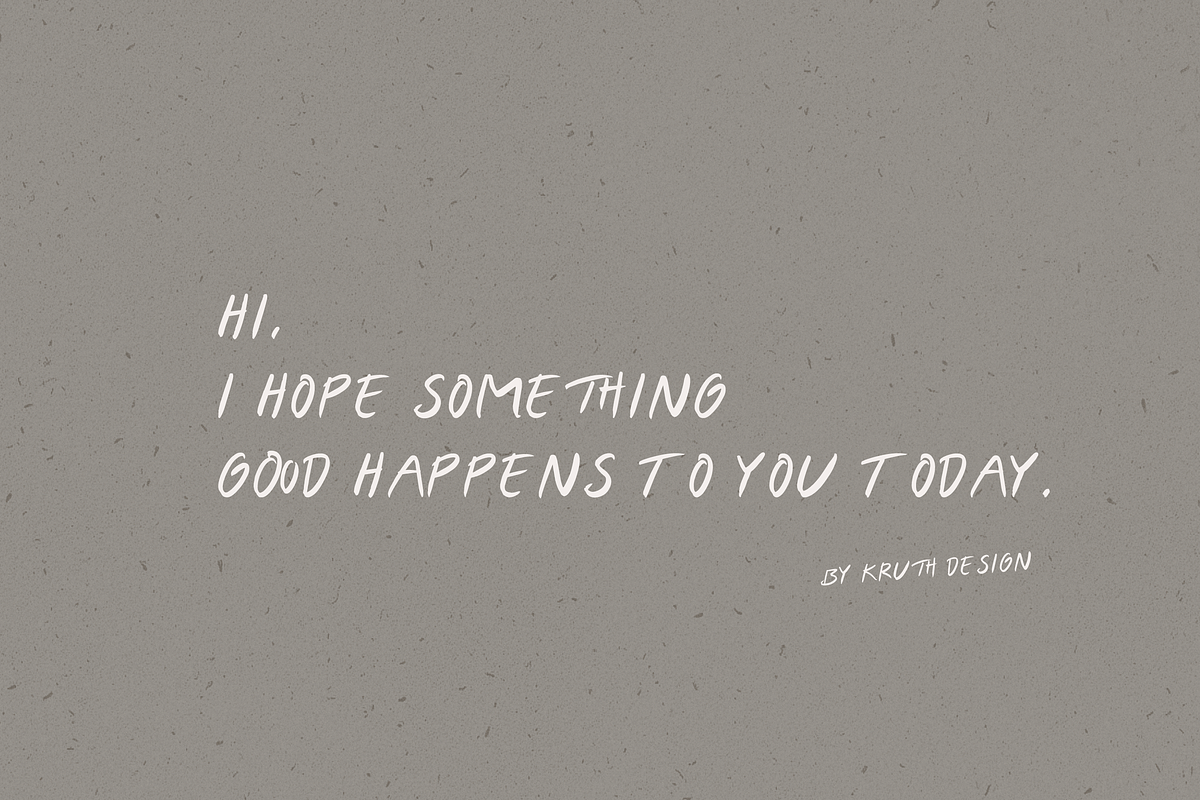 HI.
I HOPE SOMETHING
GOOD HAPPENS TO YOU TODAY.
BY KRUTH DESIGN